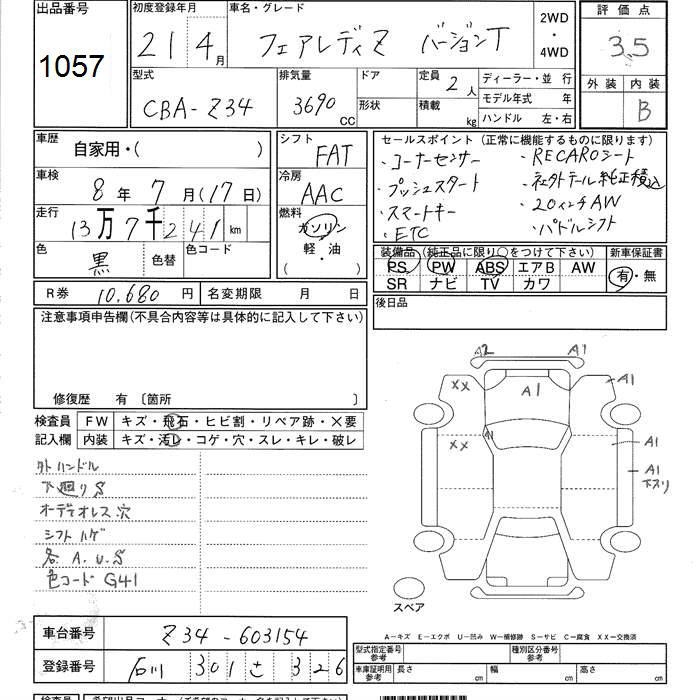 出品番号 初度登録年月 車名・グレード 2WD・4WD 評価点
1057 21 4月 フェアレディZ バージョンT 3.5
型式 排気量 ドア形状 定員 2人 ディーラー・並行 外装 内装
CBA-Z34 3690CC 積載 kg モデル年式 年 B
ハンドル 左・右
車歴 自家用・( ) シフト FAT セールスポイント(正常に機能するものに限ります)
車検 8年7月(17日) 冷房 AAC ・コーナーセンサー ・RECAROシート
・プッシュスタート ・社外テール純正積込
走行 13万7千241km 燃料 ガソリン ・スマートキー ・20インチAW
軽・油 ・ETC ・パドルシフト
色 黒 色替 色コード ( ) 装備品(純正品に限り○をつけて下さい) 新車保証書
PS PW ABS エアB AW 有・無
SR ナビ TV カワ
R券 10,680円 名変期限 月 日 後日品
注意事項申告欄(不具合内容等は具体的に記入して下さい)
修復歴 有 〔箇所 〕
検査員記入欄 FW キズ・飛石・ヒビ割・リペア跡・×要
内装 キズ・汚レ・コゲ・穴・スレ・キレ・破レ
外ハンドル
下廻りS
オーディオレス穴
シフトハゲ
各A.U.S
色コード G41
A2 A1
XX A1 A1
XX A1 A1 A1
下スリ
スペア
A-キズ E-エクボ U-凹み W-補修跡 S-サビ C-腐食 XX-交換済
車台番号 Z34-603154
登録番号 石川 301 さ 326
型式指定番号 参考 種別区分番号 参考
車庫証明用 参考 長さ cm 幅 cm 高さ cm